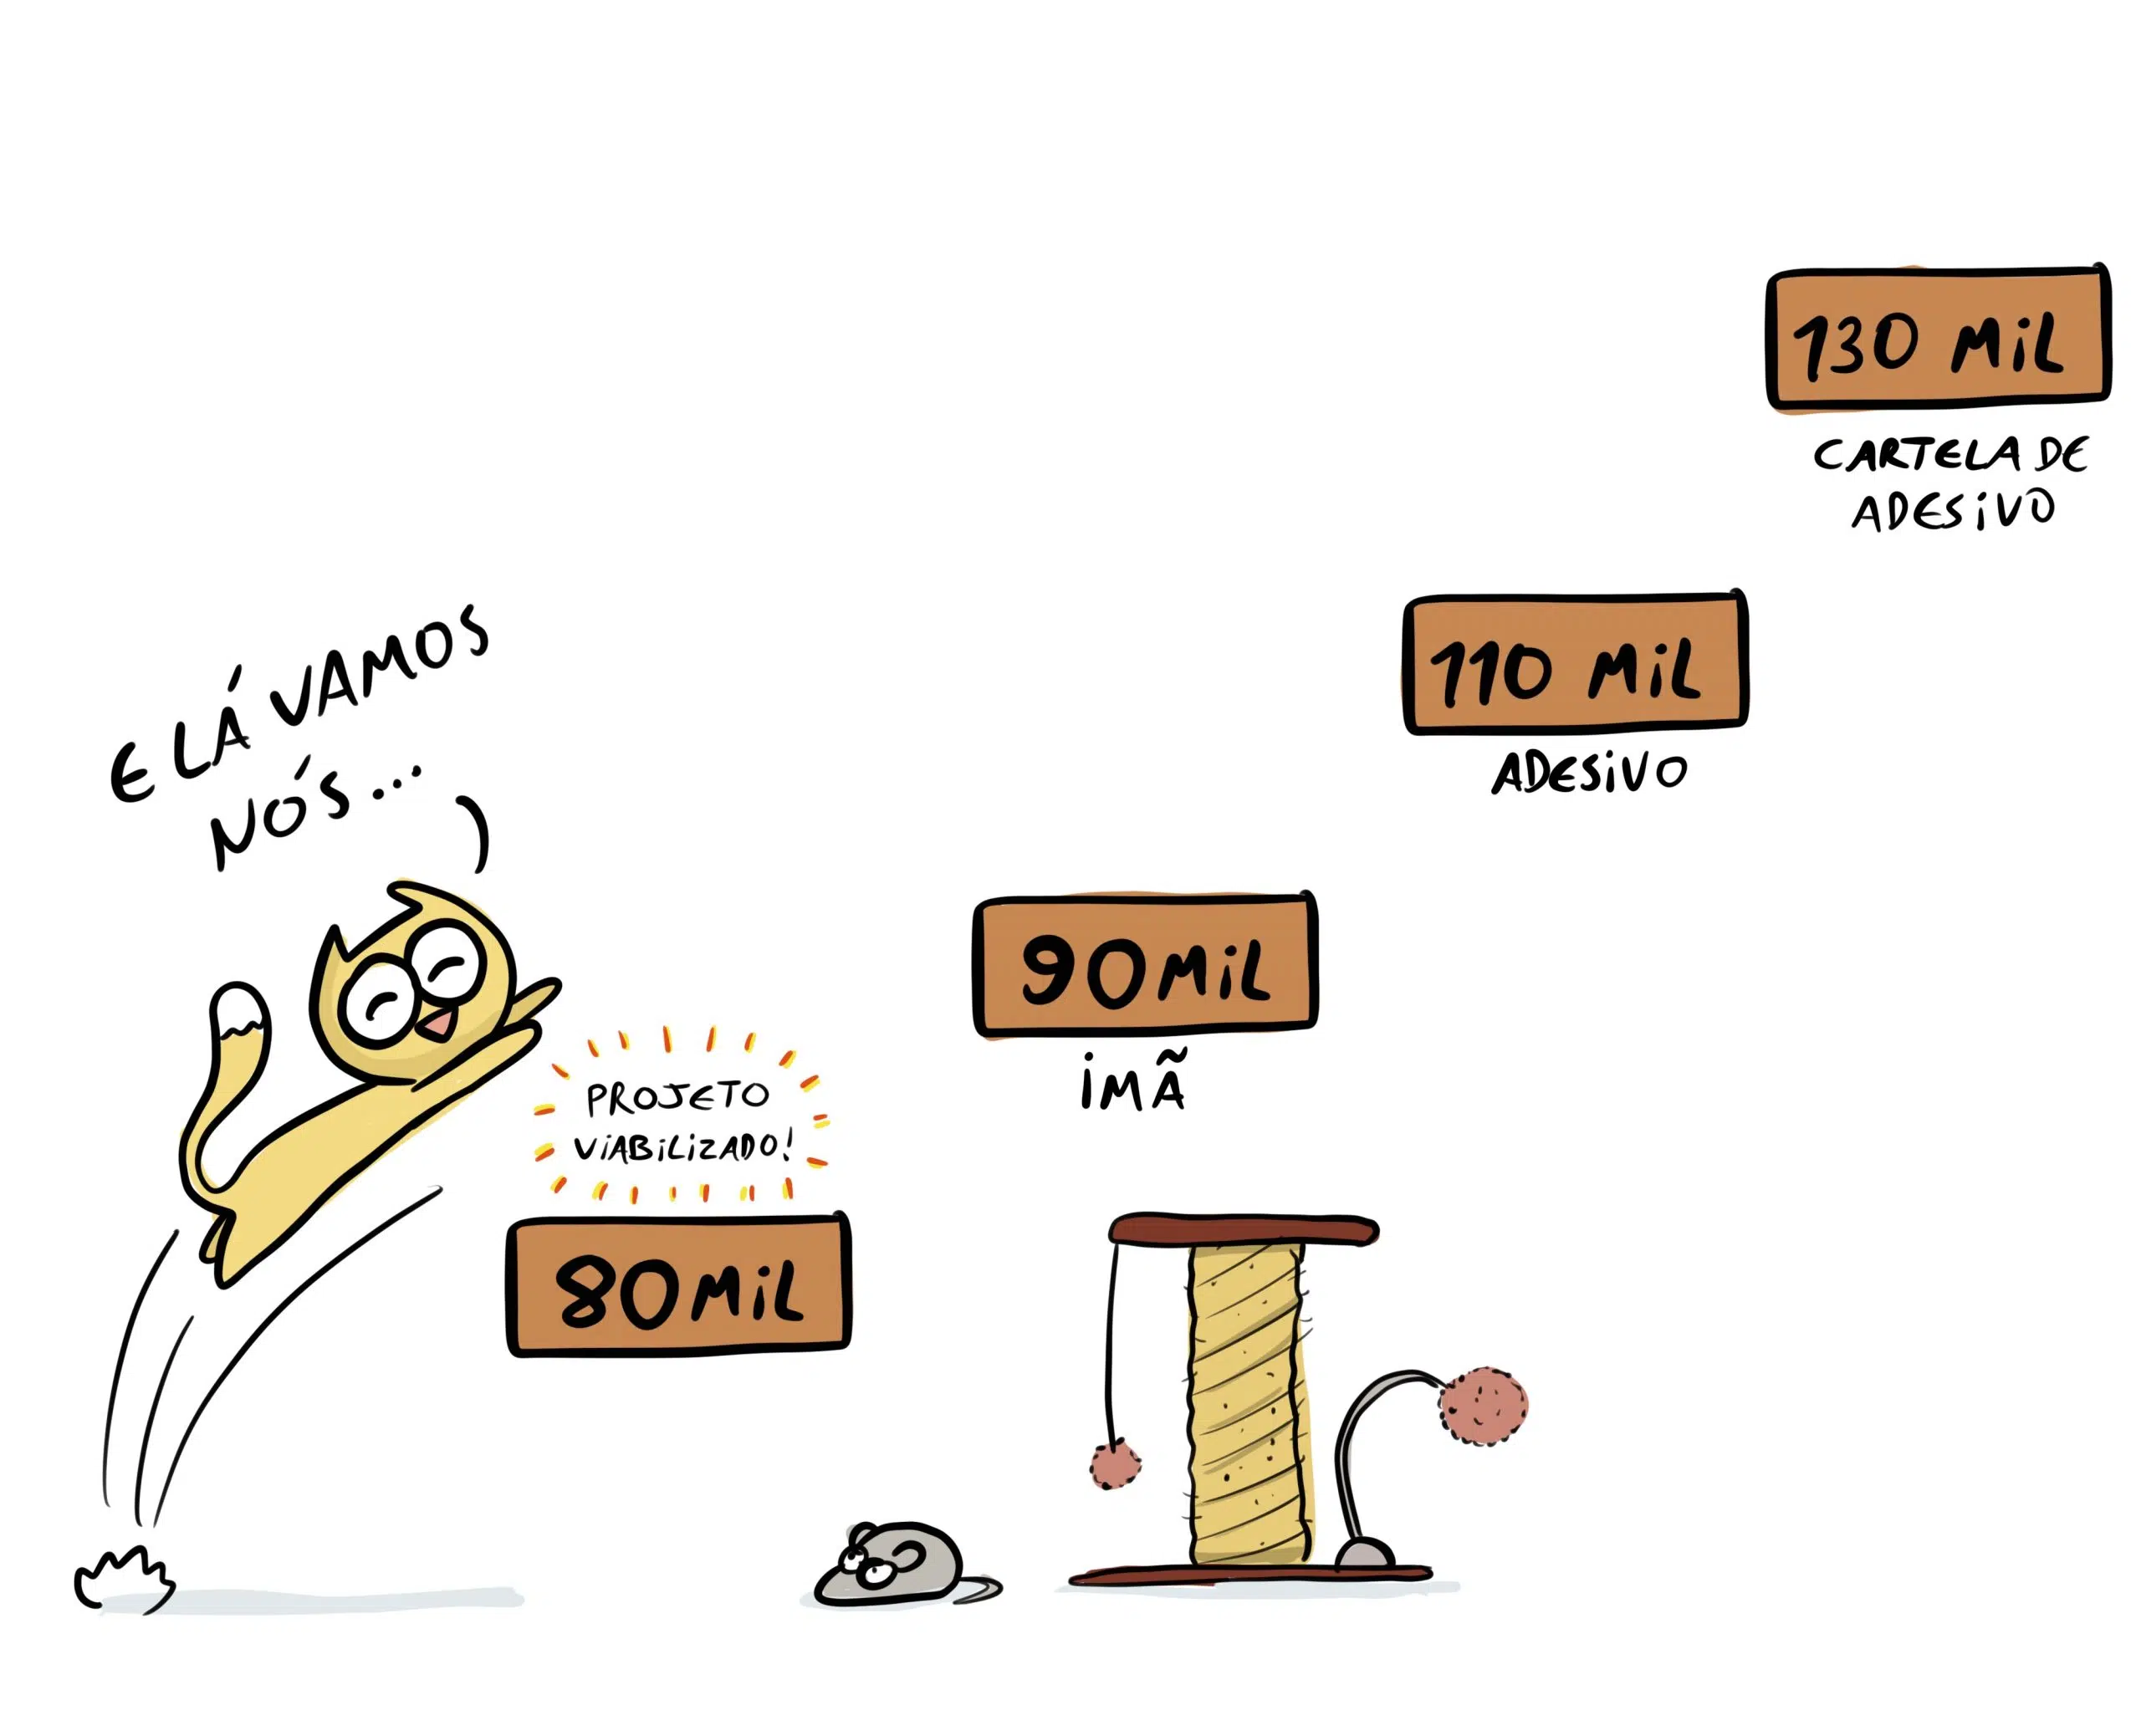 E LÁ VAMOS
NÓS...
PROJETO
VIABILIZADO!
80 MIL
90 MIL
IMÃ
110 MIL
ADESIVO
130 MIL
CARTELA DE
ADESIVO